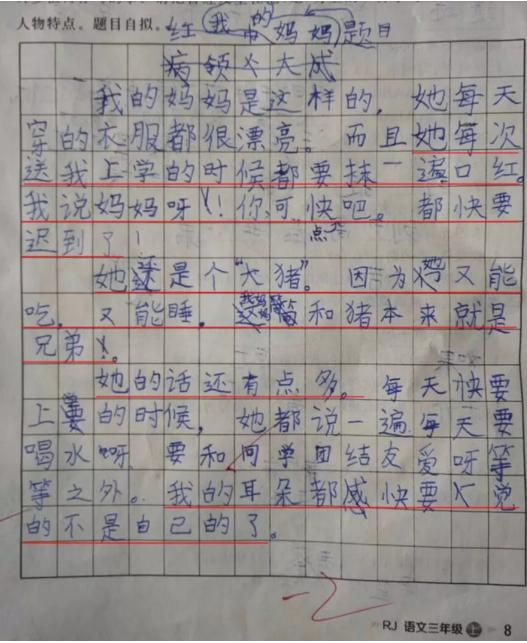 人物特点。题目自拟。
我的妈妈
题目
我的妈妈是这样的，她每天
穿的衣服都很漂亮。而且她每次
送我上学的时候都要抹一遍口红。
我说妈妈呀！你可快点吧。都快要
迟到了！
她还是个“大猪”。因为她又能
吃，又能睡，和猪本来就是
兄弟。
她的话还有点多。每天快要
上的时候，她都说一遍每天要
喝水呀，要和同学团结友爱呀等
等之外。我的耳朵都感快要觉
的不是自己的了。
RJ 语文三年级 上 8